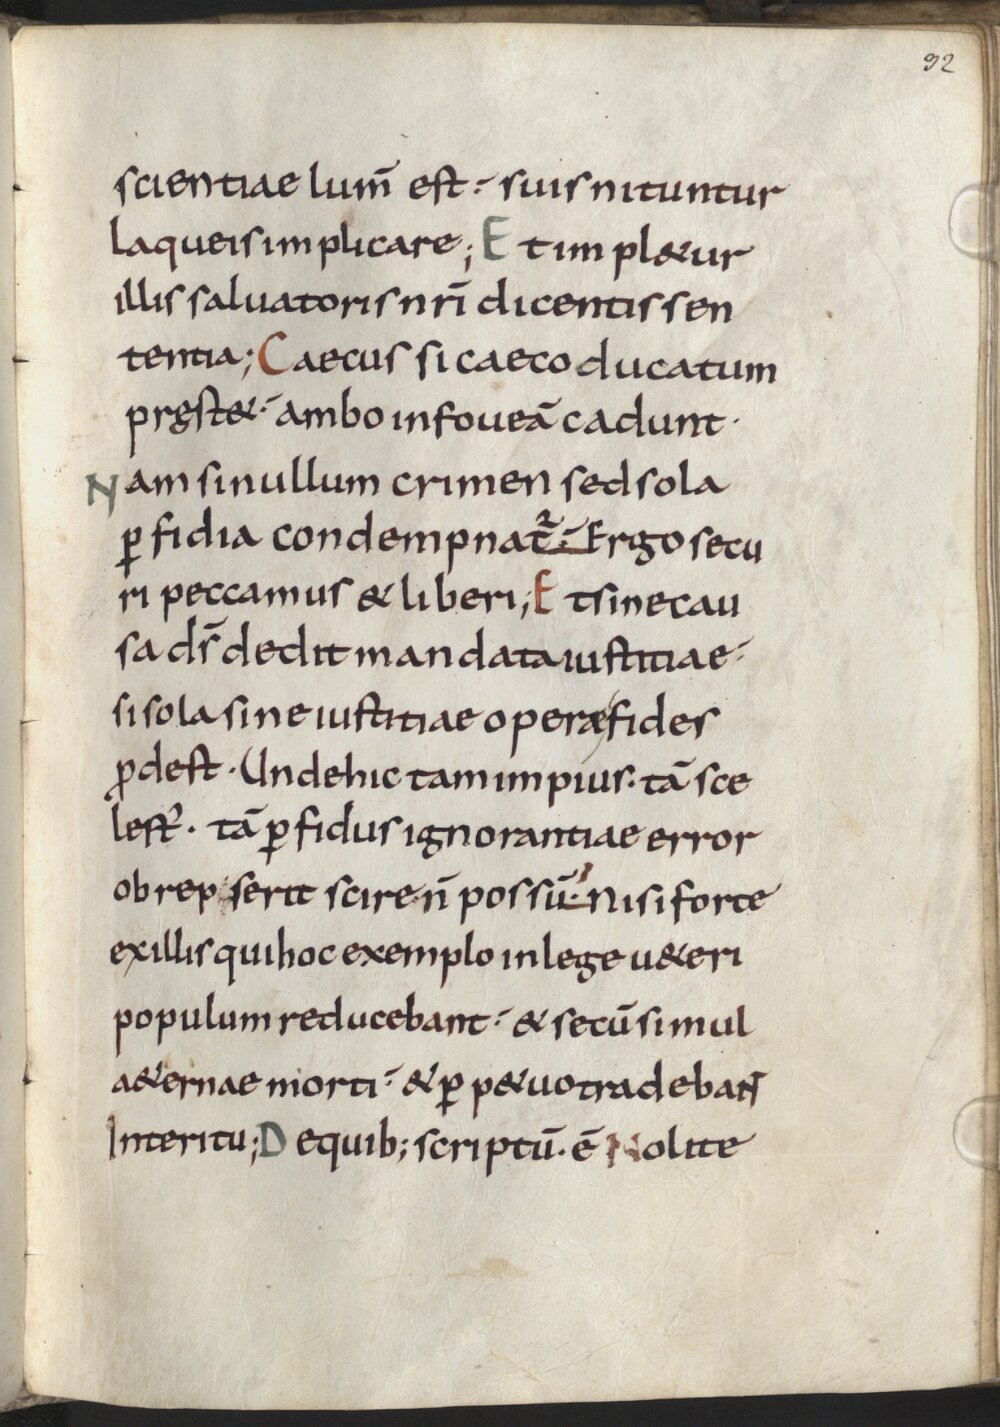 92
scientiae lum̄ est. suis nituntur
laqueis implicare; Et impl&ur
illis saluatoris nr̄i dicentis sen
tentia; Caecus si caeco ducatum
pręst&. ambo in foueā cadunt.
Nam si nullum crimen sed sola
ꝑfidia condempnat᷑. Ergo secu
ri peccamus & liberi; Et sine cau
sa dn̄s dedit mandata iustitiae.
si sola sine iustitiae opera fides
ꝓdest. Unde hic tam impius. tā sce
lest᾽. tā ꝑfidus ignorantiae error
obrepserit scire n̄ possū. Nisi forte
ex illis qui hoc exemplo in lege u&eri
populum reducebant. & secū simul
a&ernae morti. & ꝑp&uo tradebant
Interitu; De quib; scriptū. ē Nolite